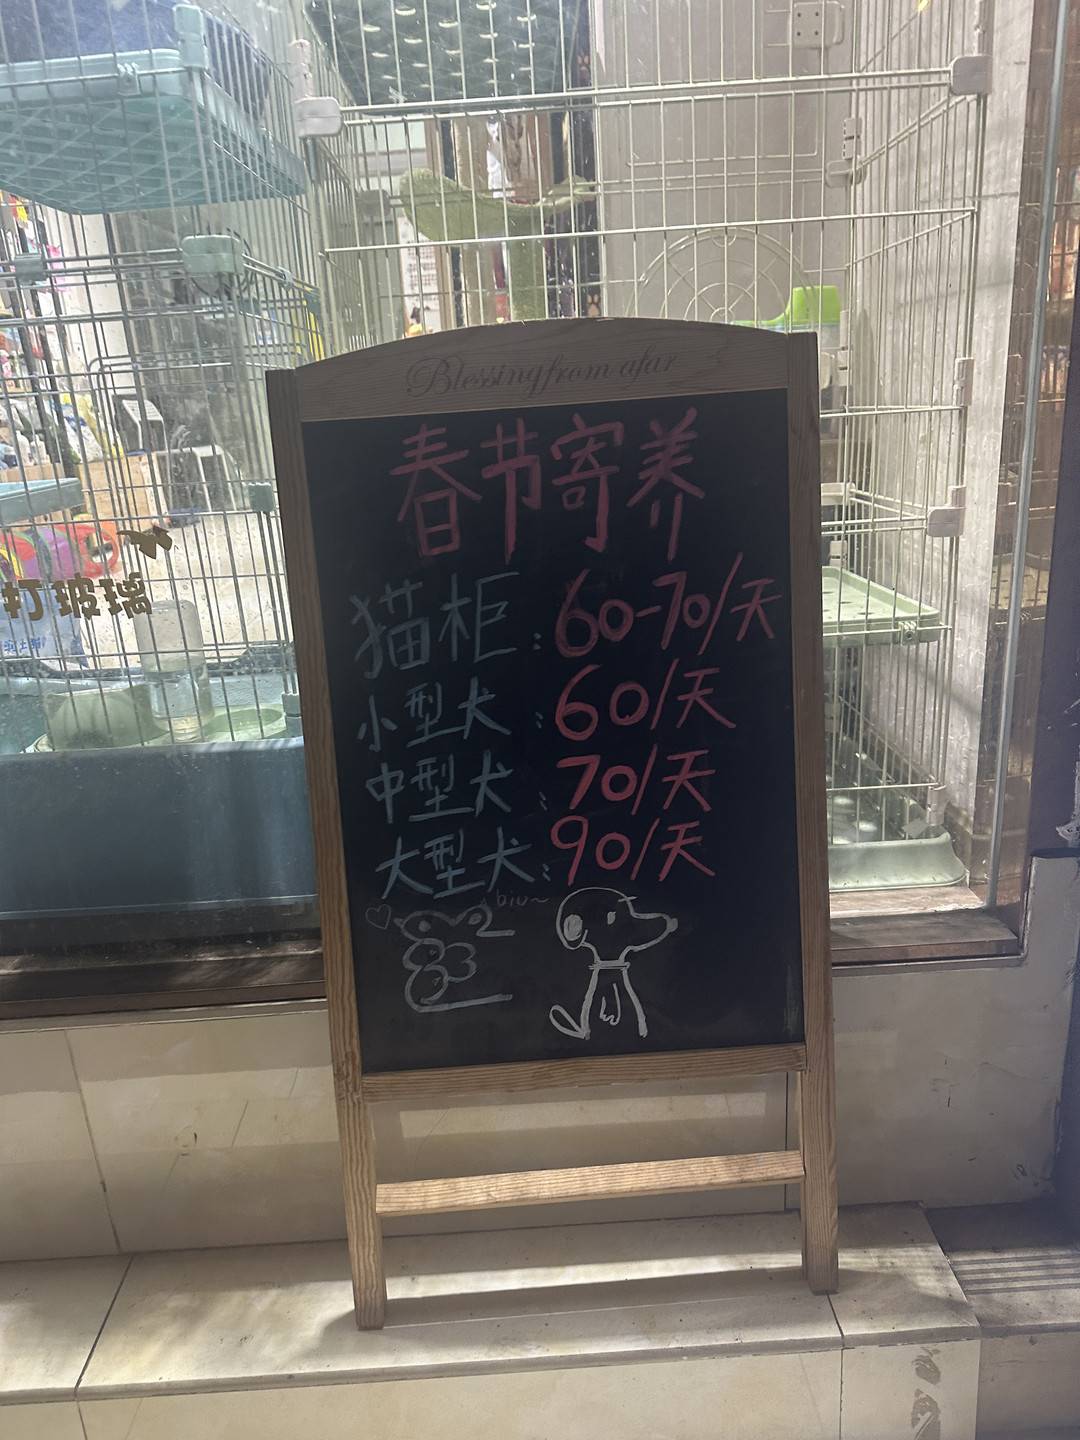 Blessing from afar
春节寄养
猫柜：60-70/天
小型犬：60/天
中型犬：70/天
大型犬：90/天
biu~
打玻璃